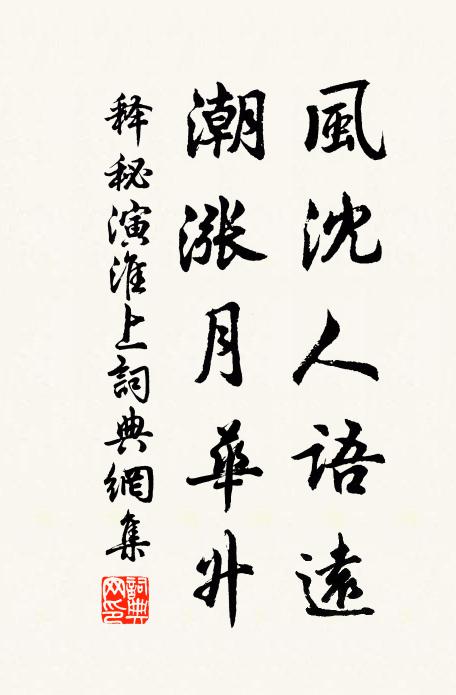 風沈人語遠
潮漲月華升
释秘演淮上詞典網集
詞典
网印